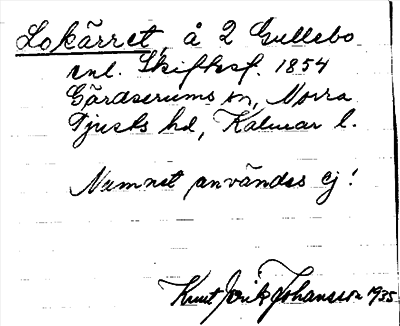 Lokärret, å 2 Gullebo
enl. Skifteskf. 1854
Gärdserums sn, Norra
Tjusts hd, Kalmar l.
Namnet användes ej!
Knut Erik Johansson 1935